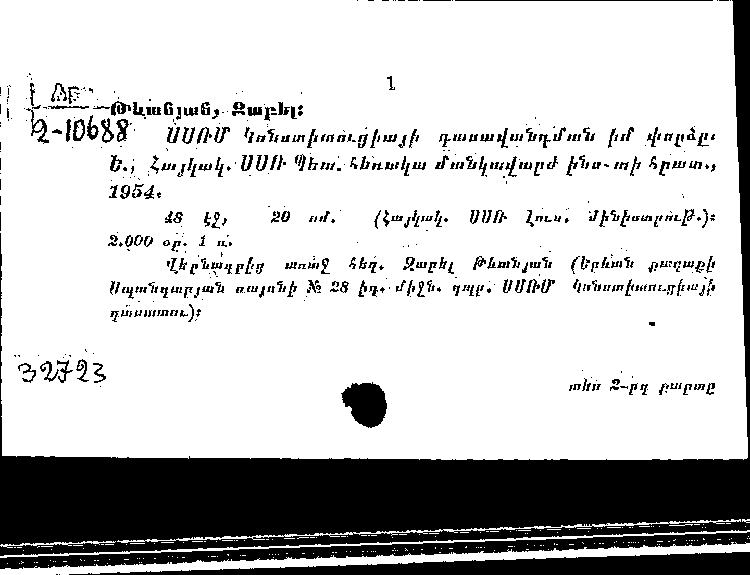 1
ԱԲ
2-10688
Թևանյան, Զաբել:
ՍՍՌՄ Կոնստիտուցիայի դասավանդման իմ փորձը.
Ե., Հայկակ. ՍՍՌ Պետ. հեռակա մանկավարժ ինս-տի հրատ.,
1954.
48 էջ, 20 սմ. (Հայկակ. ՍՍՌ Լուս. Մինիստրութ.):
2.000 օր. 1 ռ.
Վերնագրից առաջ հեղ. Զաբել Թևանյան (Երևան քաղաքի
Սպանդարյան ռայոնի № 28 իգ. միջն. դպր. ՍՍՌՄ Կոնստիտուցիայի
դասատու):
32723
տես 2-րդ քարտը